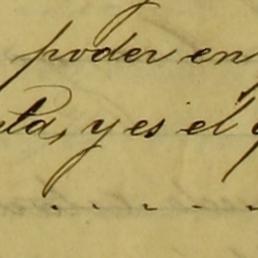 poder en
ta, y es el